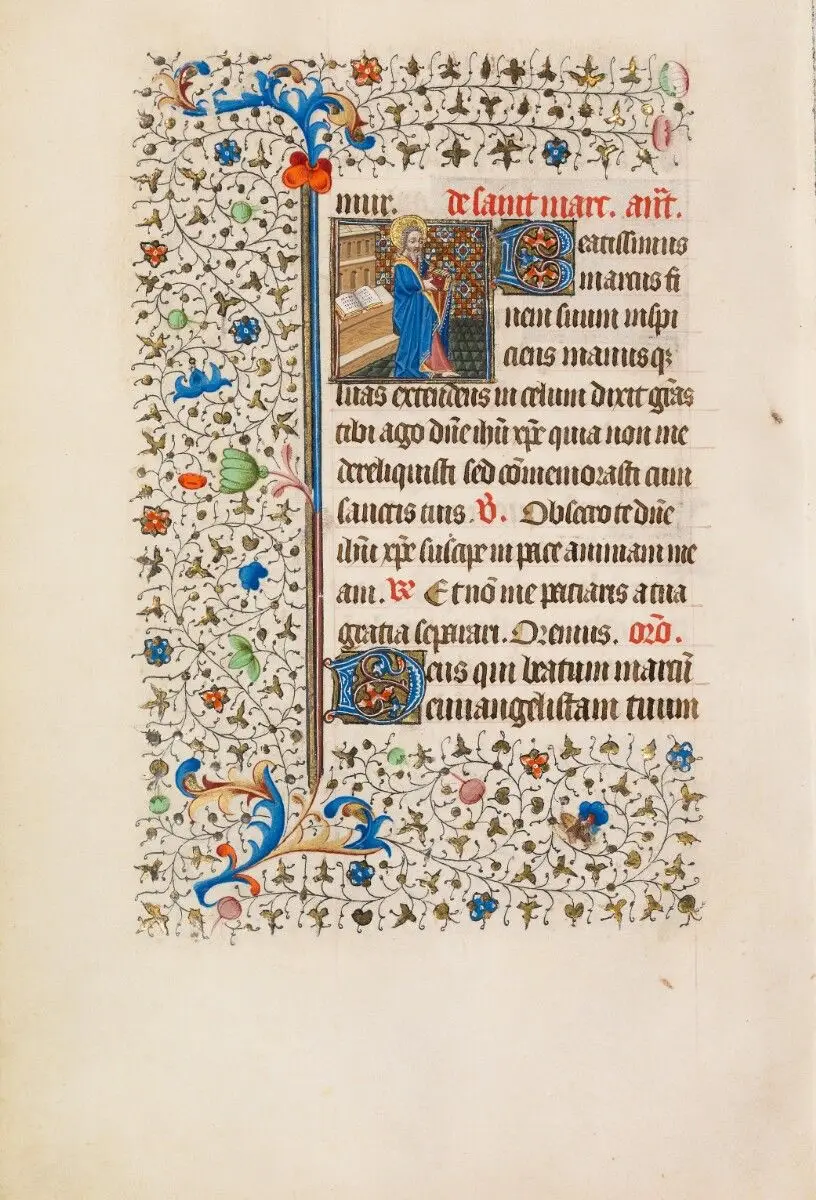 mur. de saint marc. an̄t.
Beatissimus
marcus fi
nem suum inspi
ciens manus q̄
suas extendens in celum dixit gr̄as
tibi ago dn̄e ihū xp̄e quia non me
dereliquisti sed cōmemorasti cum
sanctis tuis. V̄. Obsecro te dn̄e
ihū xp̄e suscipe in pace animam me
am. R̄ Et nō me paciaris a tua
gratia separari. Oremus. orō.
Deus qui beatum marcū
euuangelistam tuum